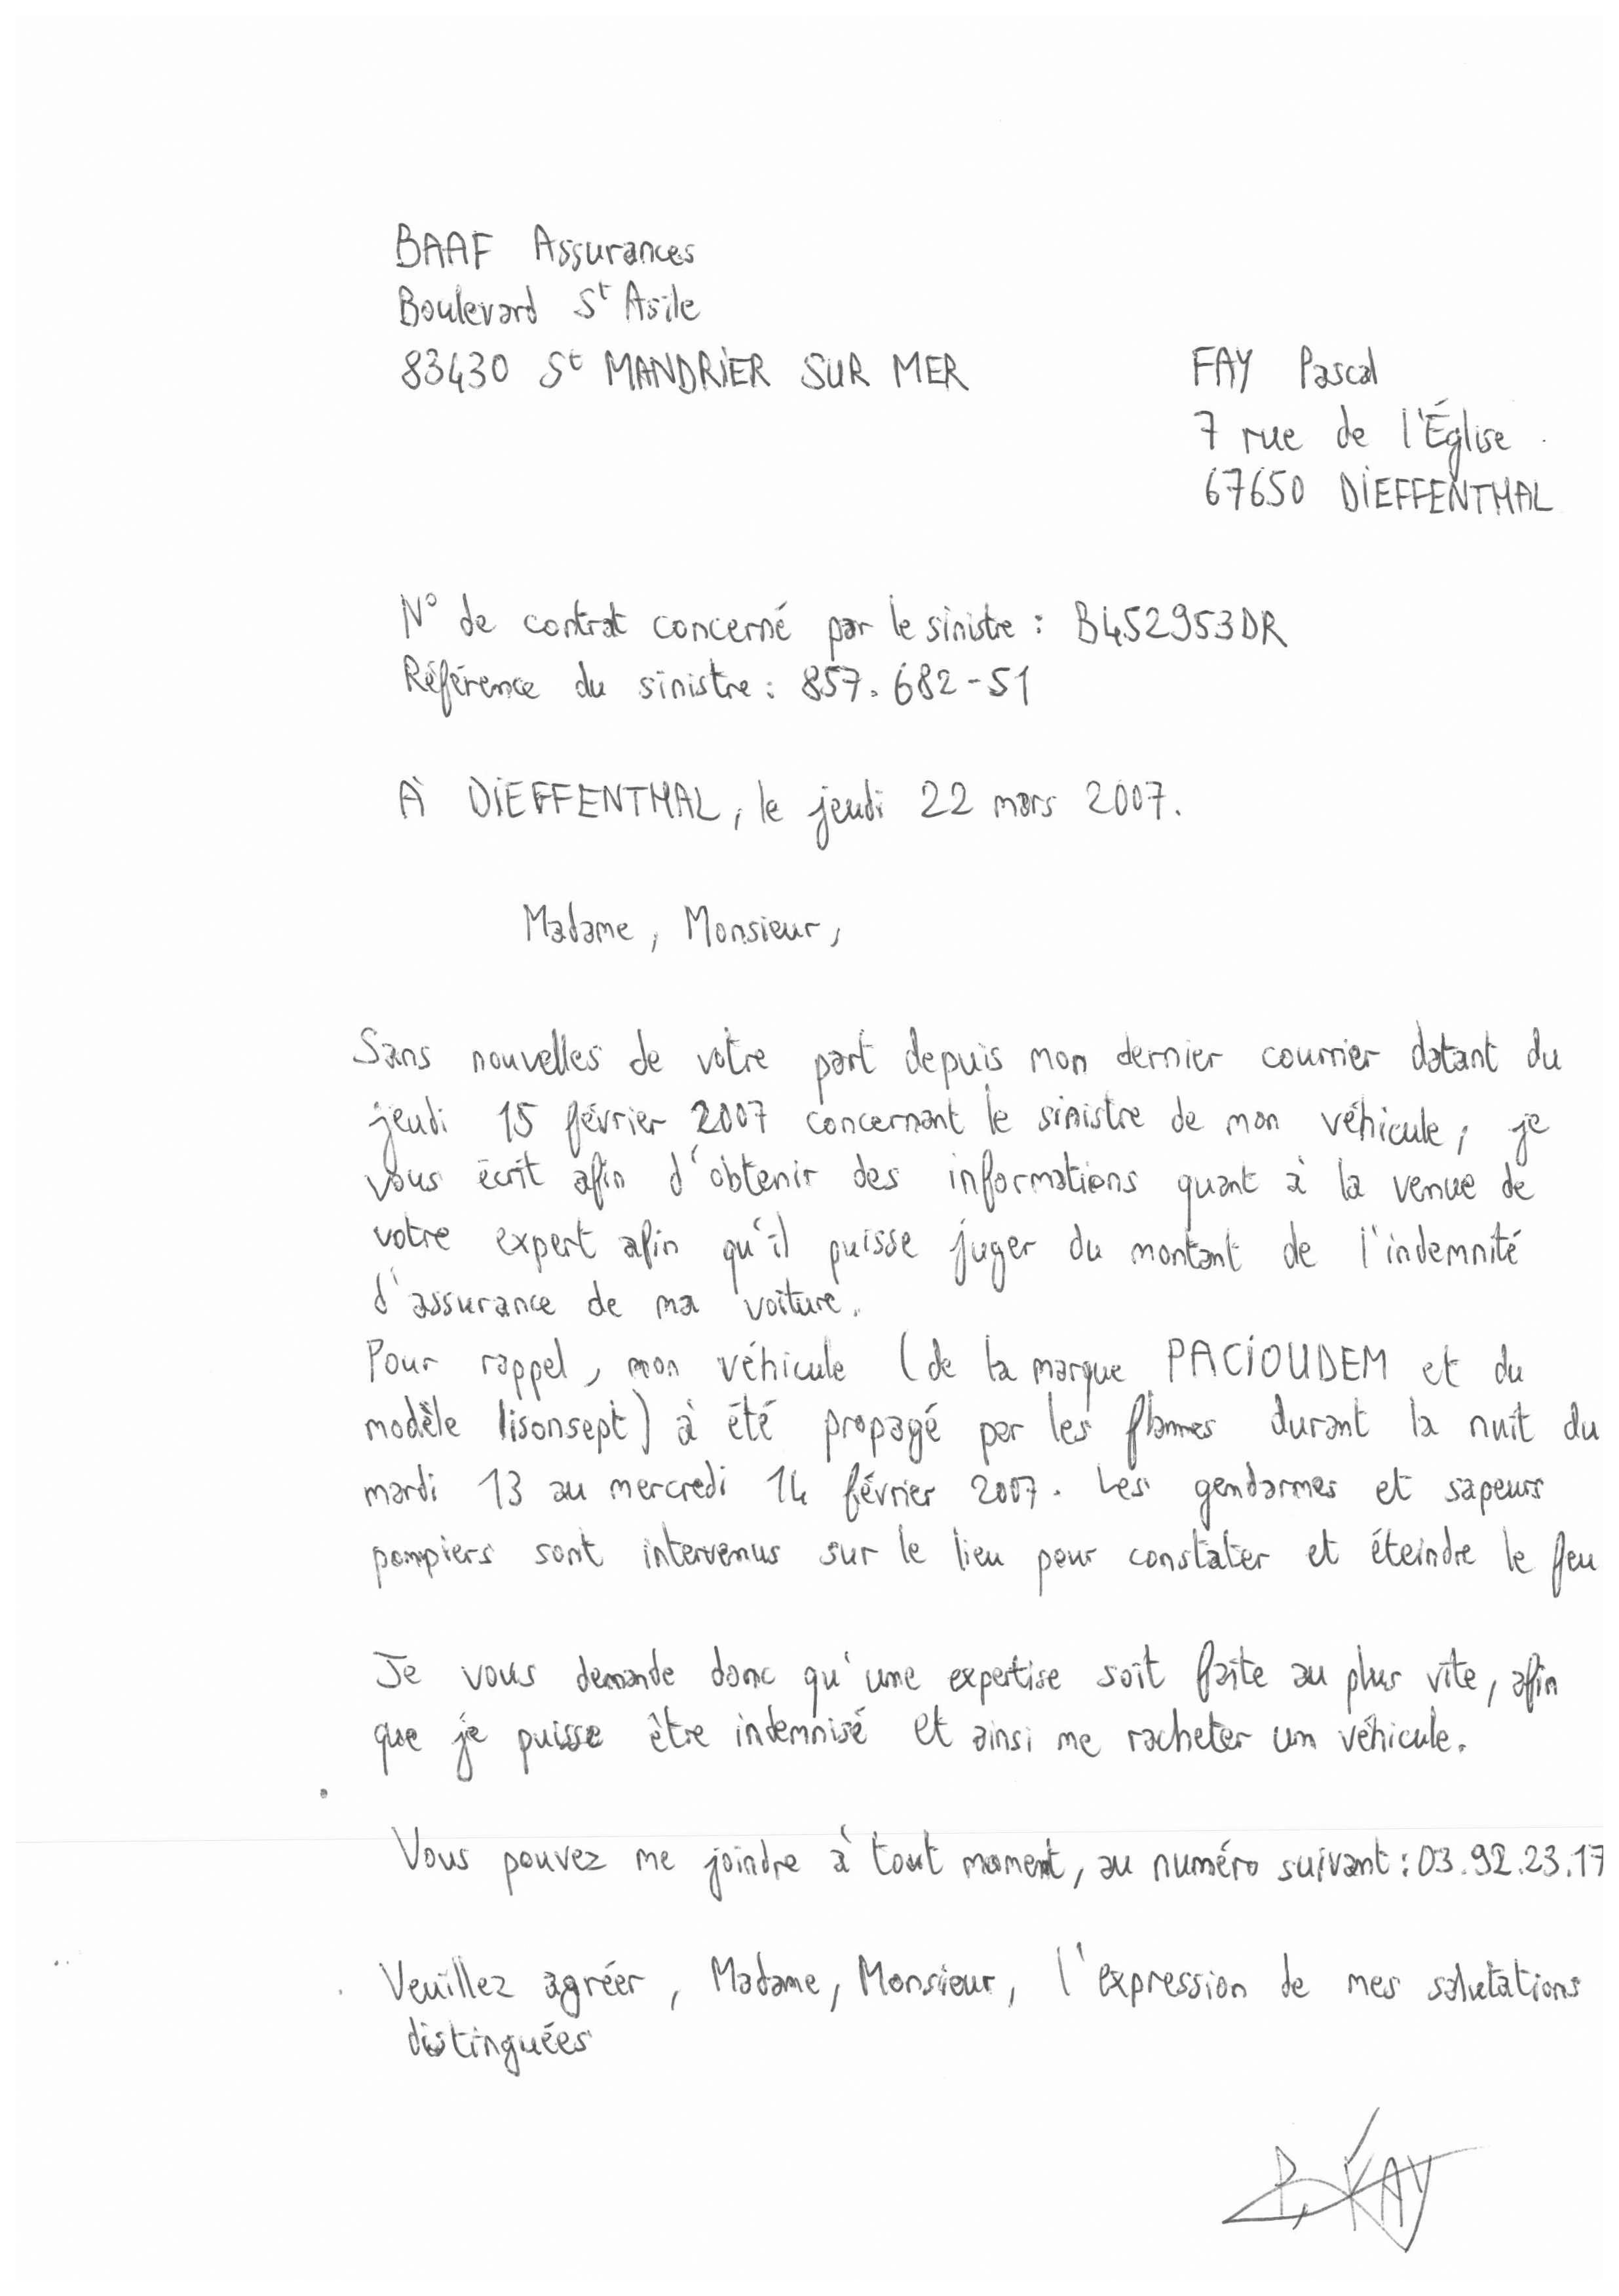 BAAF Assurances
Boulevard St Asile
83430 St MANDRIER SUR MER
FAY Pascal
7 rue de l'Église
67650 DIEFFENTHAL
N° de contrat concerné par le sinistre : B452953DR
Référence du sinistre : 857.682-51
À DIEFFENTHAL, le jeudi 22 mars 2007.
Madame, Monsieur,
Sans nouvelles de votre part depuis mon dernier courrier datant du
jeudi 15 février 2007 concernant le sinistre de mon véhicule, je
vous écrit afin d'obtenir des informations quant à la venue de
votre expert afin qu'il puisse juger du montant de l'indemnité
d'assurance de ma voiture.
Pour rappel, mon véhicule (de la marque PACIOUDEM et du
modèle lisonsept) à été propagé par les flammes durant la nuit du
mardi 13 au mercredi 14 février 2007. Les gendarmes et sapeurs
pompiers sont intervenus sur le lieu pour constater et éteindre le feu
Je vous demande donc qu'une expertise soit faite au plus vite, afin
que je puisse être indemnisé et ainsi me racheter un véhicule.
Vous pouvez me joindre à tout moment, au numéro suivant : 03.92.23.17
Veuillez agréer, Madame, Monsieur, l'expression de mes salutations
distinguées
P. FAY